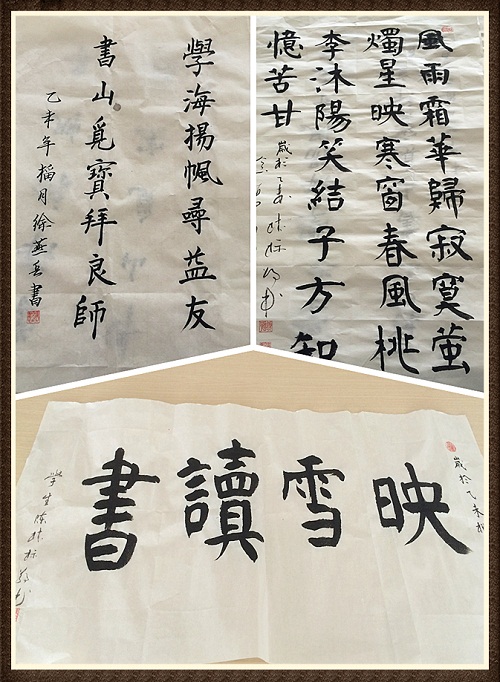 學海揚帆尋益友
書山覓寶拜良師
乙未年 月徐燕 書
風雨霜華歸寂寞螢
燭星映寒窗春風桃
李沐陽笑結子方知
憶苦甘
歲於乙未
歲於乙未秋
映雪讀書
學生陳